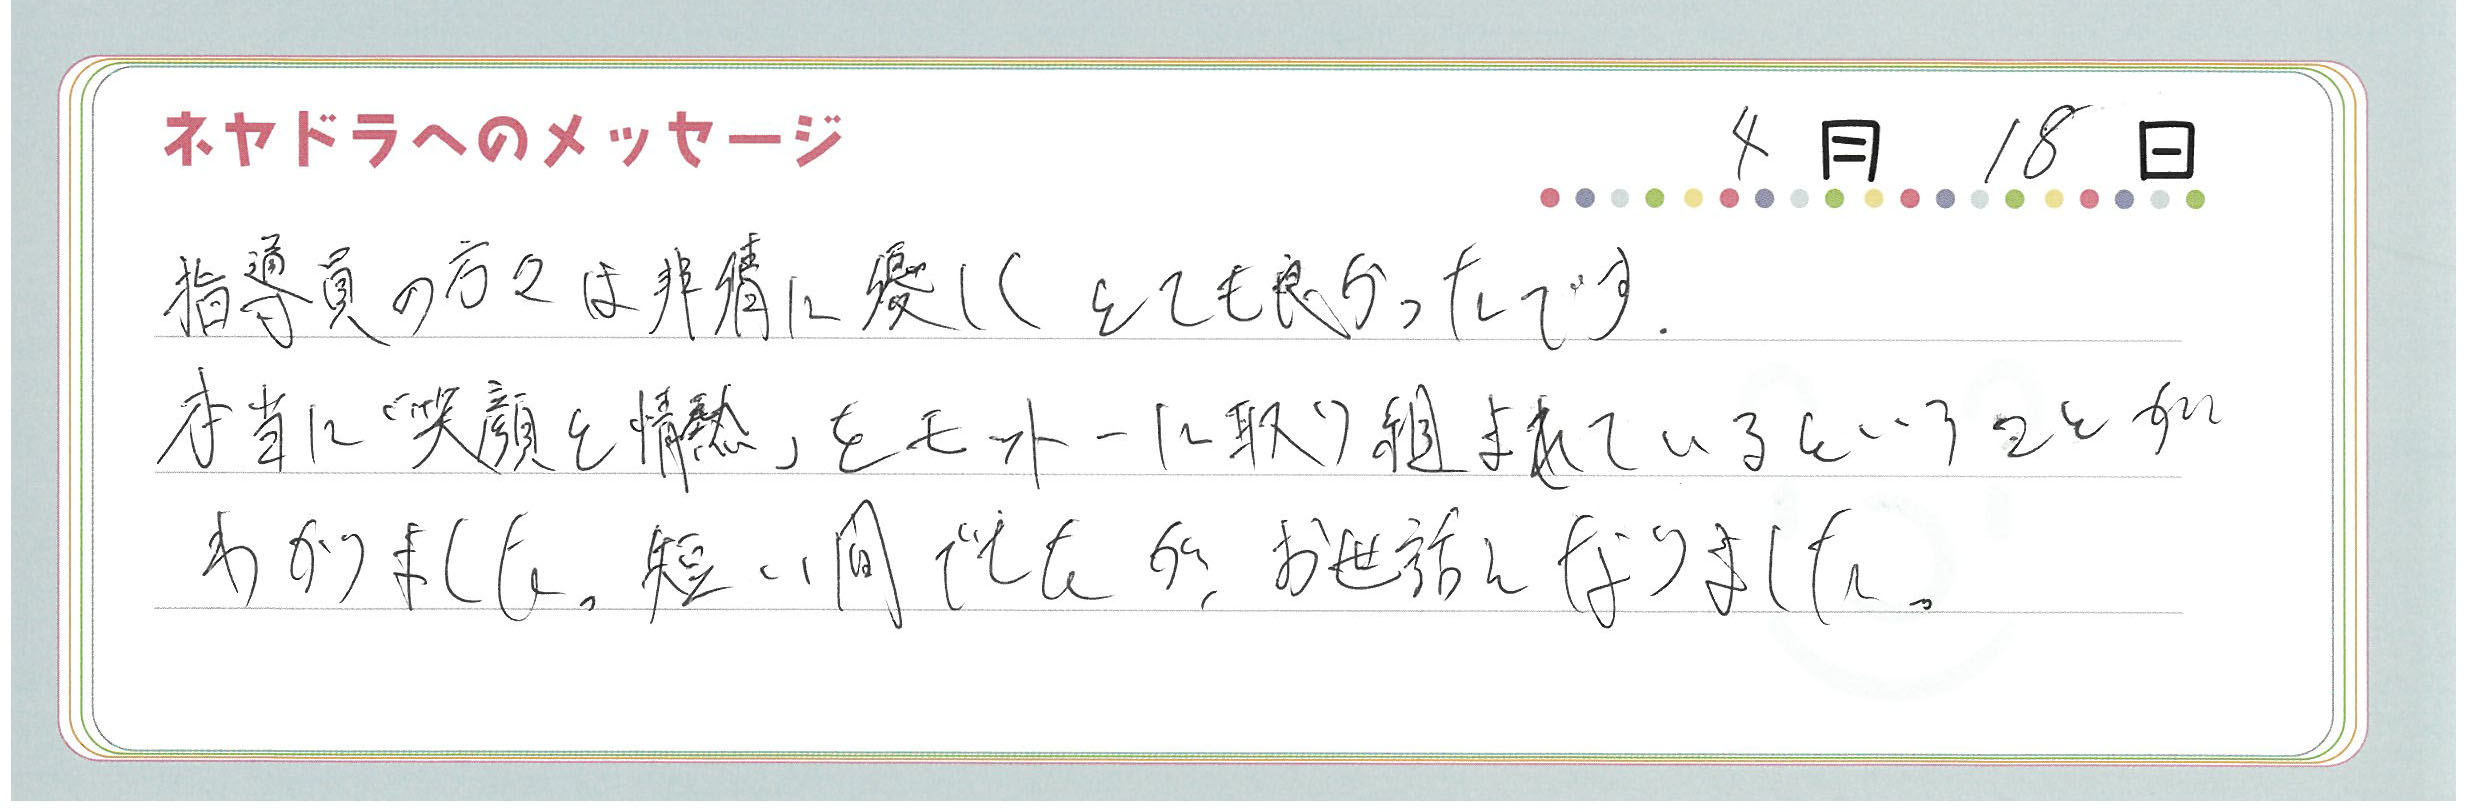 ネヤドラへのメッセージ
4月 18日
指導員の方々は非情に優しくとても良かったです.
本当に「笑顔と情熱」をモットーに取り組まれているということが
わかりました。短い間でしたが、お世話になりました。